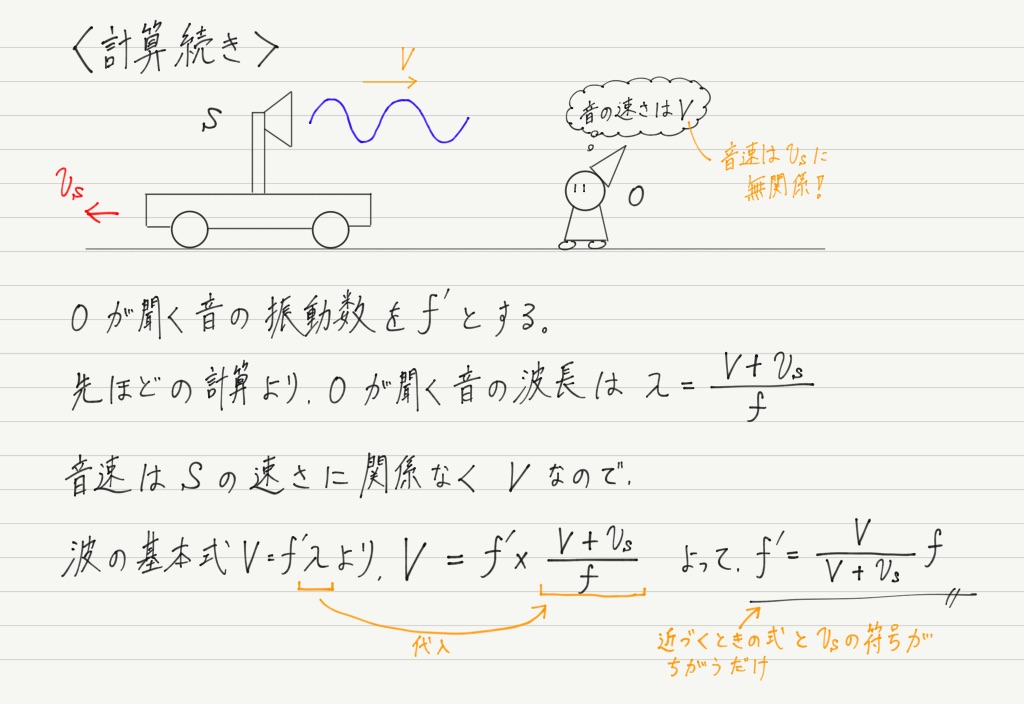 〈計算続き〉
V
S
音の速さはV
音速はvsに
無関係!
vs
O
Oが聞く音の振動数をf'とする。
先ほどの計算より,Oが聞く音の波長は λ = (V+vs)/f
音速はSの速さに関係なくVなので,
波の基本式V=f'λより, V = f'× (V+vs)/f よって, f'= V/(V+vs) f
代入
近づくときの式とvsの符号が
ちがうだけ